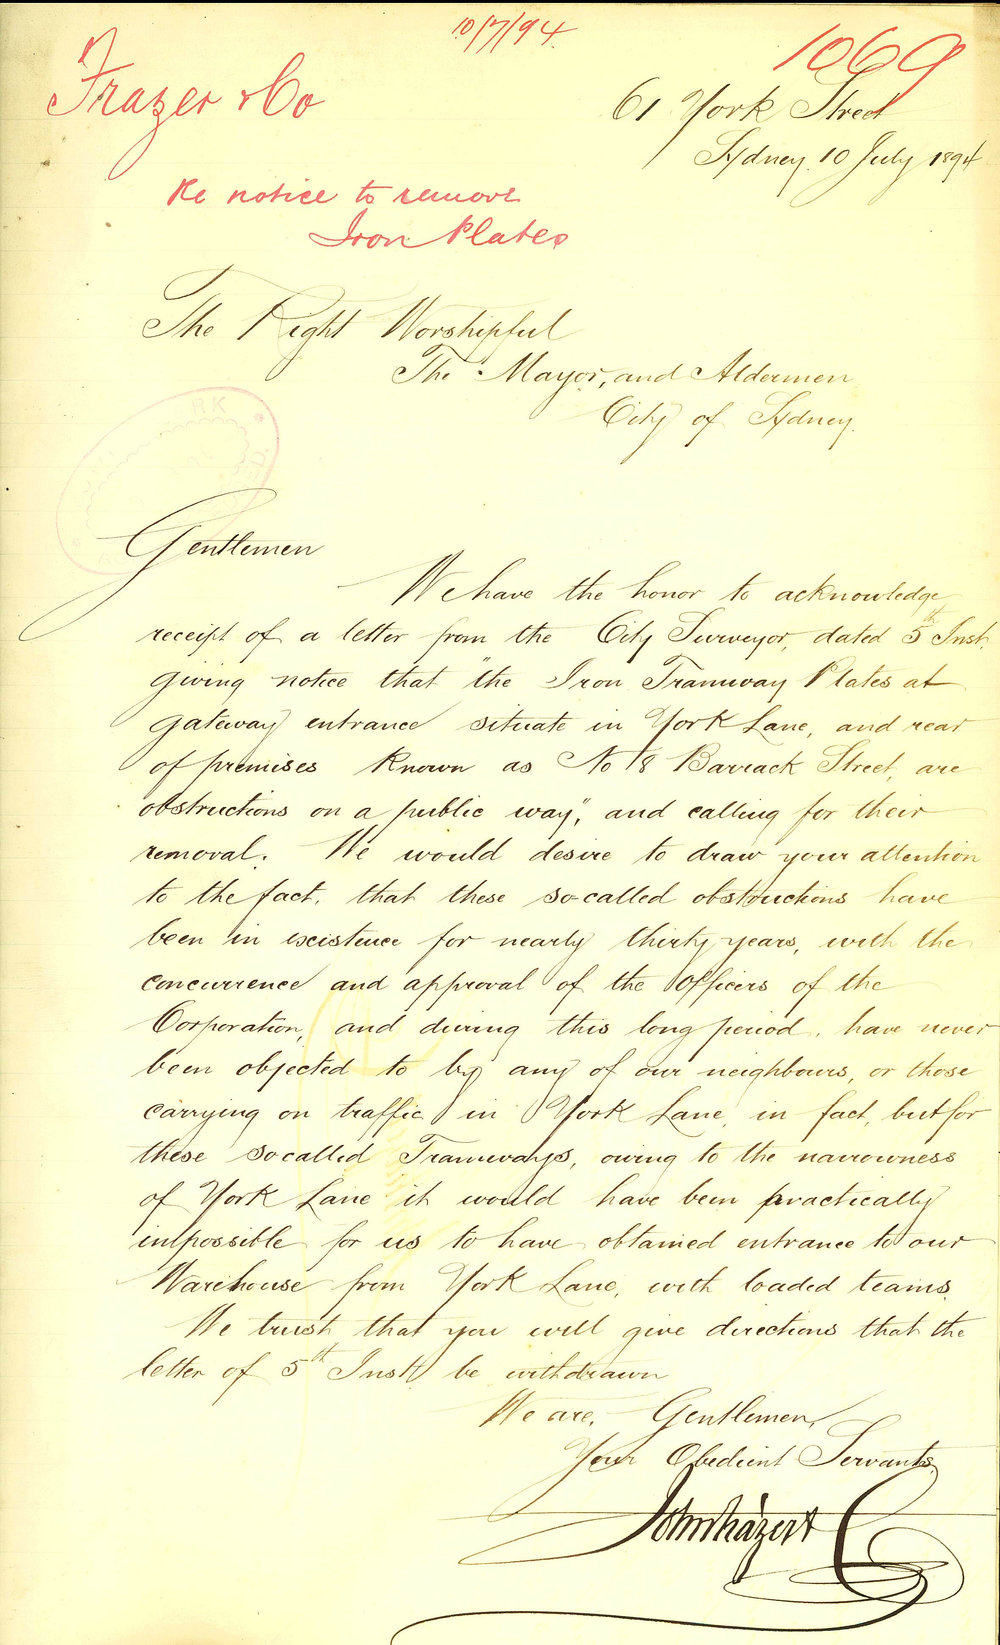 10/7/94.
1069
Frazer & Co
61 York Street
Sydney. 10 July 1894
Re notice to remove
Iron Plates
The Right Worshipful
The Mayor, and Aldermen
City of Sydney.
Gentlemen
We have the honor to acknowledge
receipt of a letter from the City Surveyor, dated 5th Inst.
giving notice that "the Iron Tramway Plates at
gateway entrance situate in York Lane, and rear
of premises known as No 8 Barrack Street, are
obstructions on a public way", and calling for their
removal. We would desire to draw your attention
to the fact, that these so-called obstructions have
been in existence for nearly thirty years, with the
concurrence and approval of the Officers of the
Corporation, and during this long period, have never
been objected to by any of our neighbours, or those
carrying on traffic in York Lane, in fact, but for
these so called Tramways, owing to the narrowness
of York Lane it would have been practically
impossible for us to have obtained entrance to our
Warehouse from York Lane, with loaded teams.
We trust that you will give directions that the
letter of 5th Inst. be withdrawn
We are, Gentlemen,
Your Obedient Servants,
John Frazer & Co